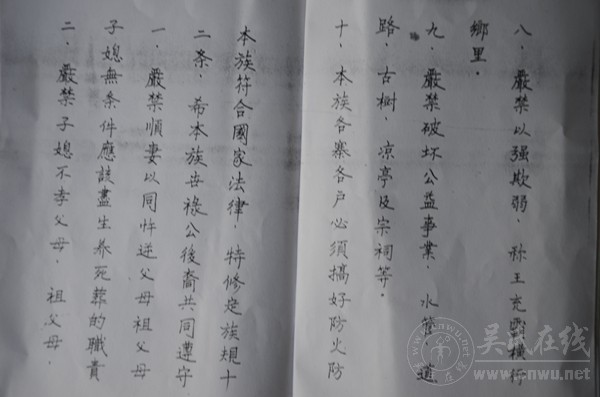 八、嚴禁以强欺弱．称王充霸横行
鄉里．
九、嚴禁破坏公益事業．水管．道
路．古树．凉亭及宗祠等．
十、本族各寨各户必须搞好防火防
本族符合國家法律．特修定族規十
二条．希本族世祿公後裔共同遵守
一、嚴禁順妻以同忤逆父母祖父母
子媳無条件應該盡生养死葬的職責
二、嚴禁子媳不孝父母．祖父母．
吴氏在线
www.cnwu.net